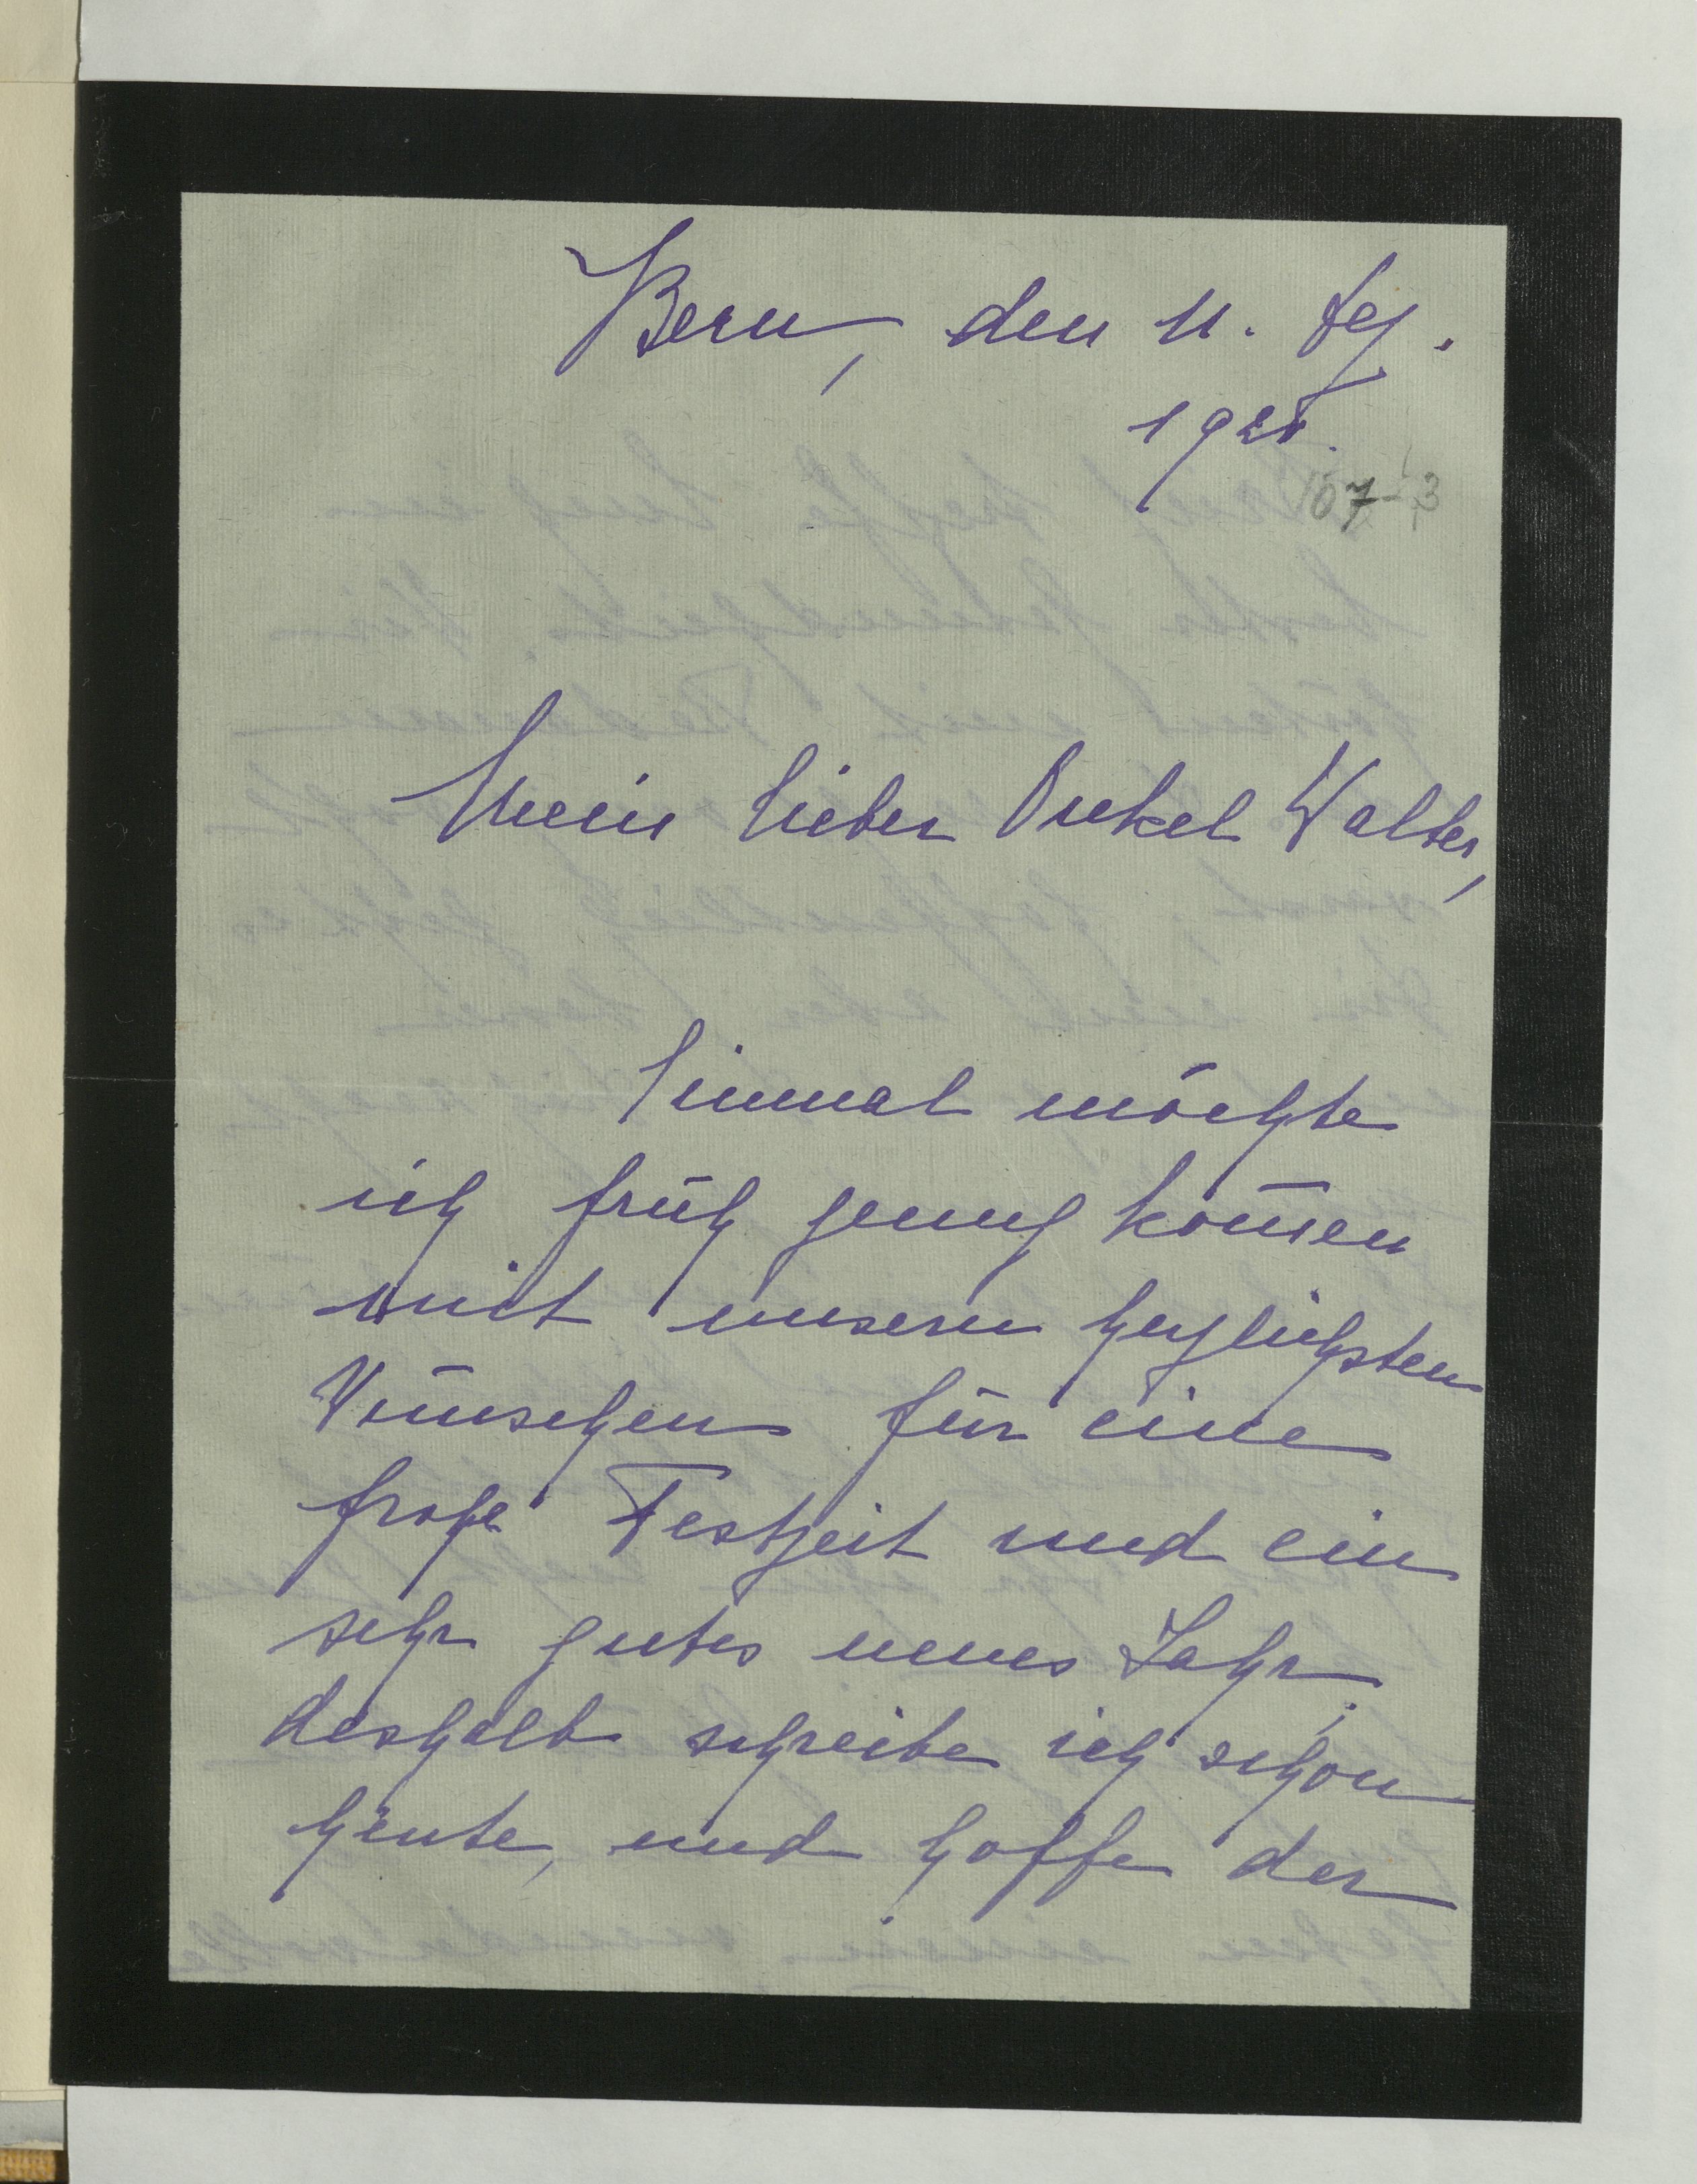 Bern, den 11. Dez.
1921.
107-3
Mein lieber Onkel Walter,
Einmal möchte
ich früh genug kom̄en
mit unsern herzlichsten
Wünschen für eine
frohe Festzeit und ein
sehr gutes neues Jahr,
deshalb schreibe ich schon
heute, und hoffe der